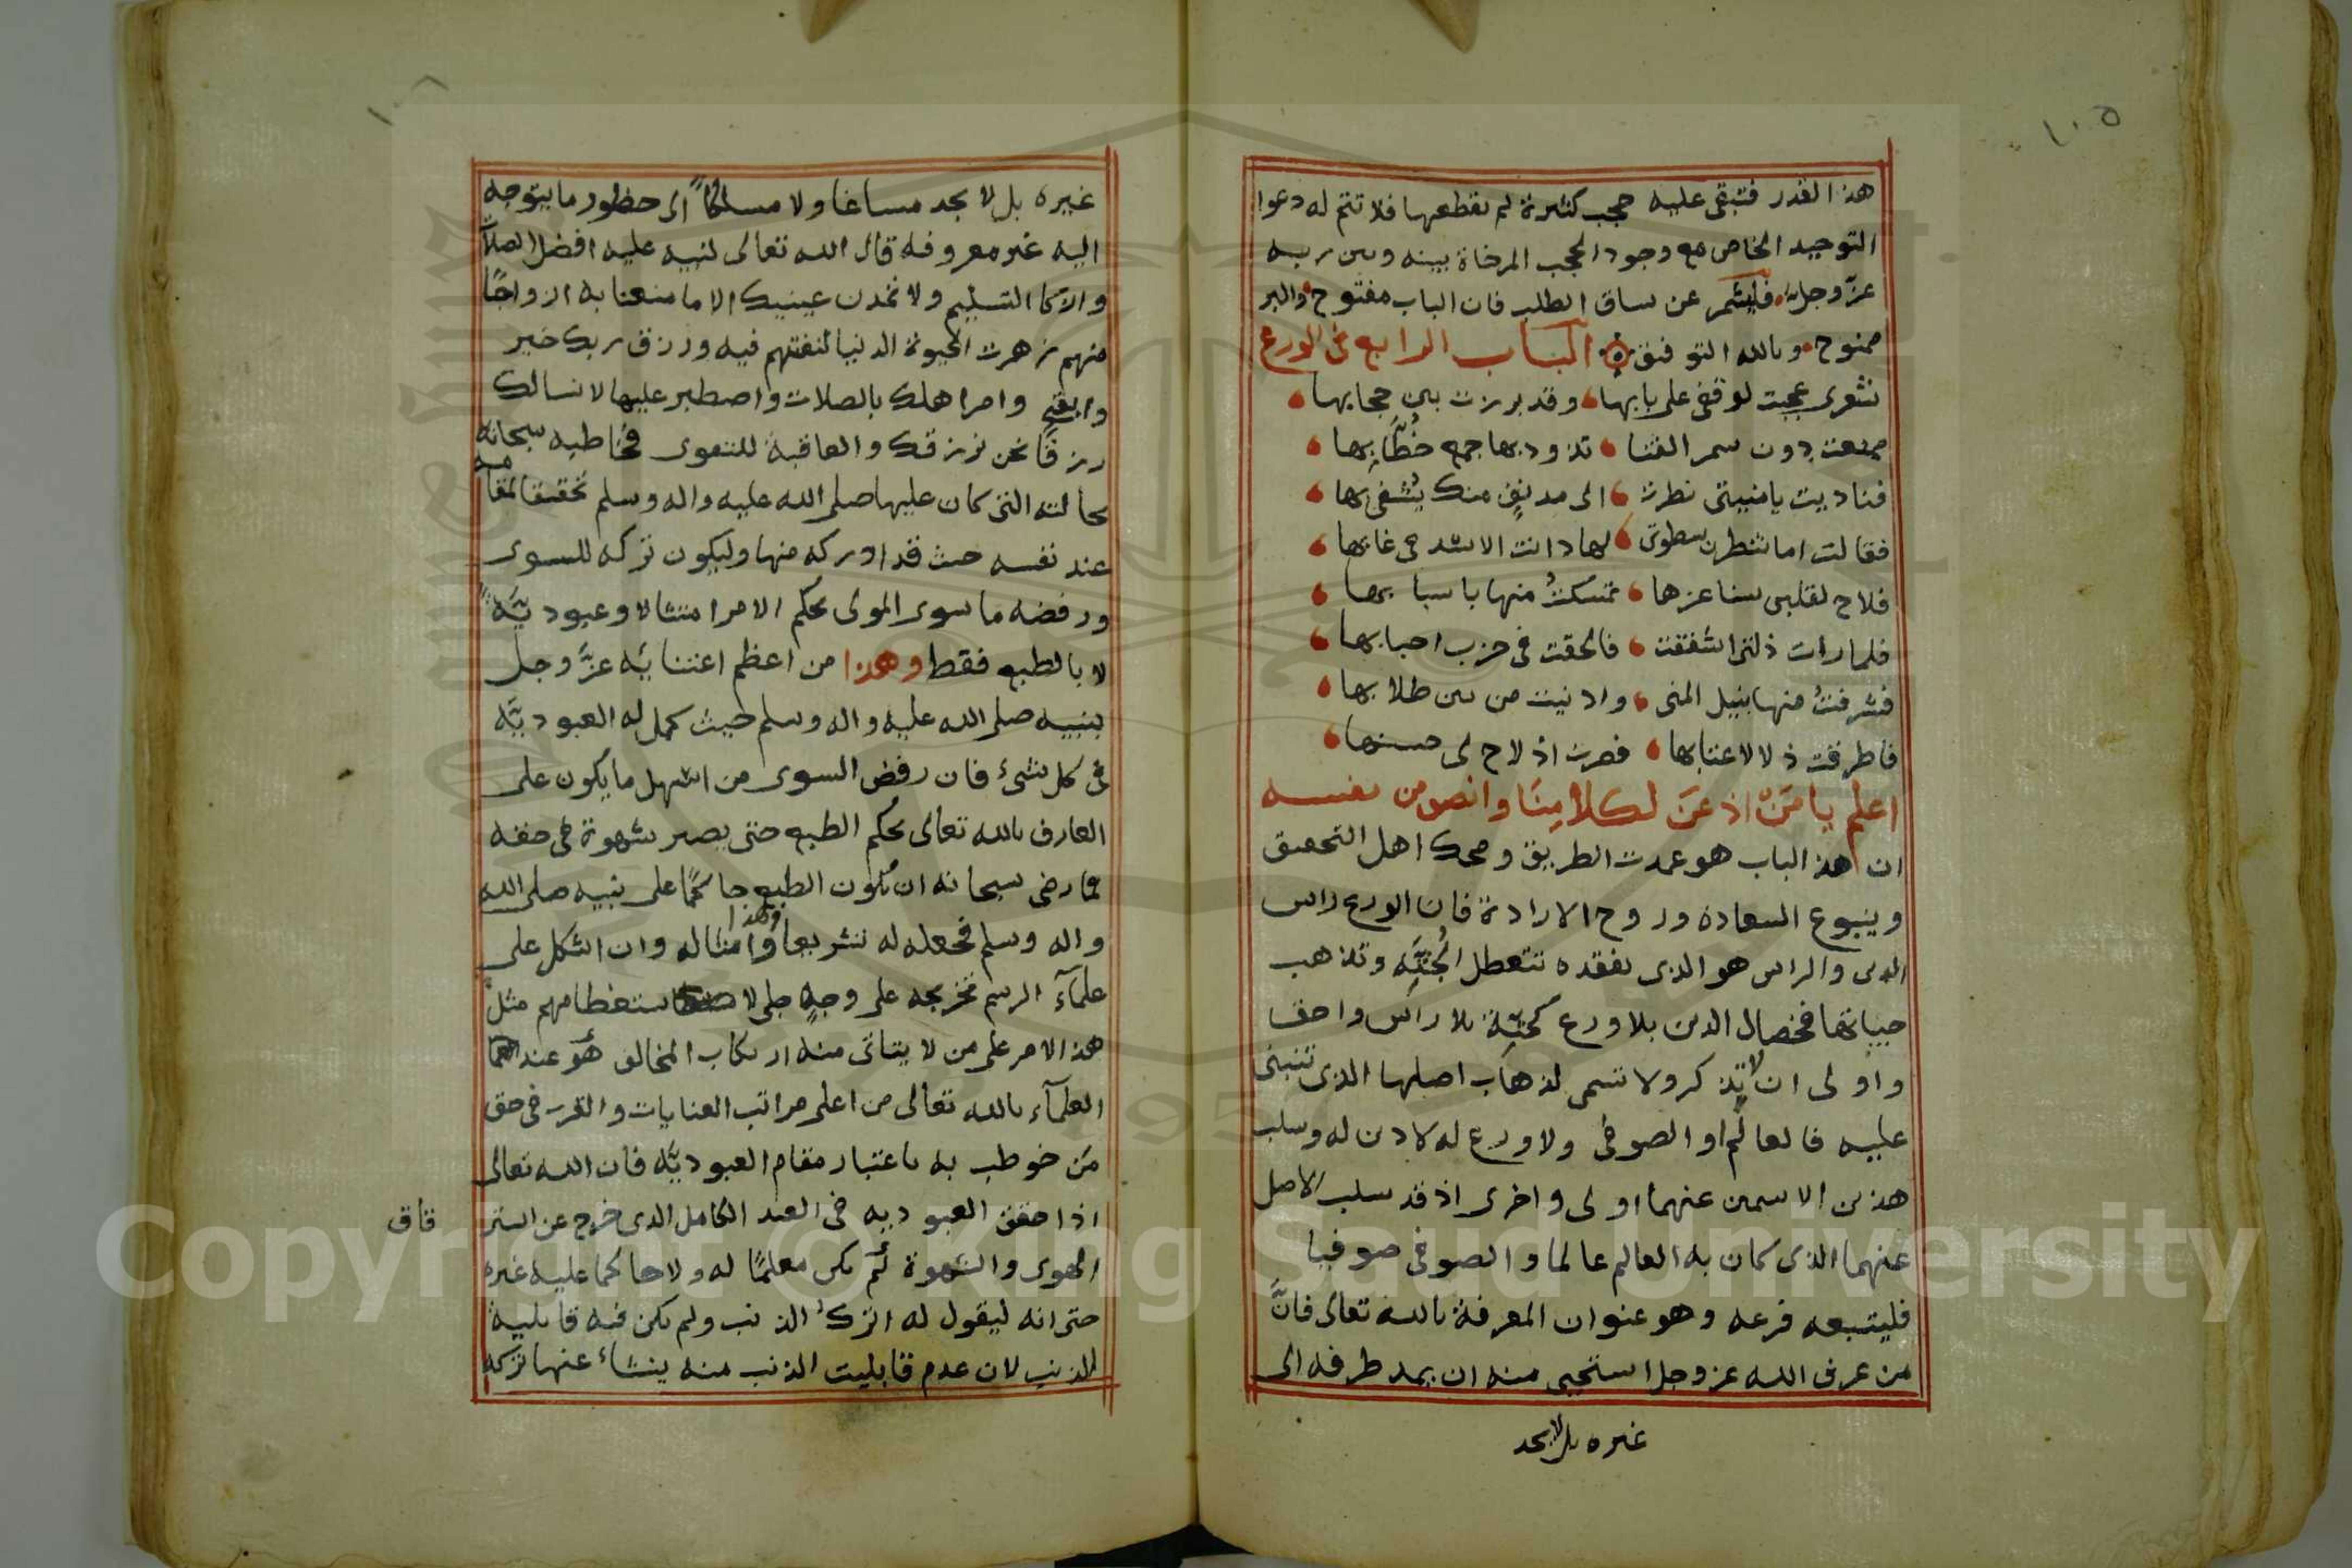 ١٠٥
هذا القدر فتبقى عليه حجب كثيرة لم يقطعها فلا تتم له دعوا
التوحيد الخاص مع وجود الحجب المرخاة بينه وبين ربه
عزّ وجل فليشمر عن ساق الطلب فان الباب مفتوح والبر
ممنوح وبالله التوفيق الباب الرابع في الورع
شعرى عجبت لوقفى على بابها وقد برزت بين حجابها
منعت دون سمر القنا تذود بها جمع خُطَّابها
فناديت يا منيتى نظرت الى مدنفٍ منك يُشفى بها
فقالت اما تنظرن سطوتى لها دانت الاسد فى غابها
فلاح لقلبى سنا عزها تمسكتُ منها باسبابها
فلما رات ذلتى اشفقت فالحقت فى حزب احبابها
فشرفتُ منها بنيل المنى وادنيت من بين طلابها
فاطرقت ذلا لاعتابها فصرت اذ لاح لى حسنها
اعلم يا مَنْ اذعَنَ لكلامِنَا وانصف من نفسه
ان هذ الباب هو عمدت الطريق ومحك اهل التحقيق
وينبوع السعادة وروح الارادة فان الورع راس
الدين والراس هو الذى بفقده تتعطل الجُثَّه وتذهب
حيياتها فخصال الدين بلا ورع كجثّة بلا راس واحق
واولى ان لا تذكر ولا تسمى لذهاب اصلها الذى تنبنى
عليه فالعالم او الصوفى ولا ورع له لا دين له وسلب
هذين الاسمين عنهما اولى واحرى اذ قد سلب الاصل
عنهما الذى كان به العالم عالما والصوفى صوفيا
فليتبعه فرعه وهو عنوان المعرفة بالله تعالى فانَّ
من عرف الله عز وجل استحيى منه ان يمد طرفه الى
غيره بل لا يجد
١٠٦
غيره بل لا يجد مساغا ولا مسلكاً الى حظور ما يتوجه
اليه غير معروفه قال الله تعالى لنبيه عليه افضل الصلاة
والزكا التسليم ولا تمدن عينيك الا ما متعنا به ازواجًا
منهم زهرت الحيوة الدنيا لنفتنهم فيه ورزق ربك خير
وابقى وامر اهلك بالصلات واصطبر عليها لا نسالك
رزقًا نحن نرزقك والعاقبة للتقوى فخاطبه سبحانه
بحالته التى كان عليها صلى الله عليه واله وسلم تحقيقا لمقامه
عند نفسه حيث قد ادركه منها وليكون تركه للسوى
ورفضه ما سوى المولى بحكم الامر امتثالا وعبوديَّةً
لا بالطبع فقط وهذا من اعظم اعتنايه عزَّ وجل
بنبيه صلى الله عليه واله وسلم حيث كمل له العبوديَّه
فى كل شىء فان رفض السوى من اسهل ما يكون على
العارف بالله تعالى بحكم الطبع حتى يصير شهوة فى حقه
فما رضى سبحانه ان يكون الطبع حاكمًا على نبيه صلى الله
واله وسلم فجعله له تشريعا وامثاله وهذا وان اشكل على
علمآء الرسم تخريجه على وجهٍ جلى لاستعظامهم مثل
هذا الامر على من لا يتاتى منه ارتكاب المخالف هو عند
العلمآء بالله تعالى من اعلى مراتب العنايات والقرب فى حق
مَن خوطب به باعتبار مقام العبوديَّه فان الله تعالى
اذا حقق العبوديه فى العبد الكامل الذى خرج عن
الهوى والشهوة لم يكن معلمًا له ولا حاكما عليه غيره
حتى انه ليقول له اترك الذنب ولم يكن فيه قابلية
للذنب لان عدم قابليت الذنب منه ينشاء عنها تركه
Copyright © King Saud University